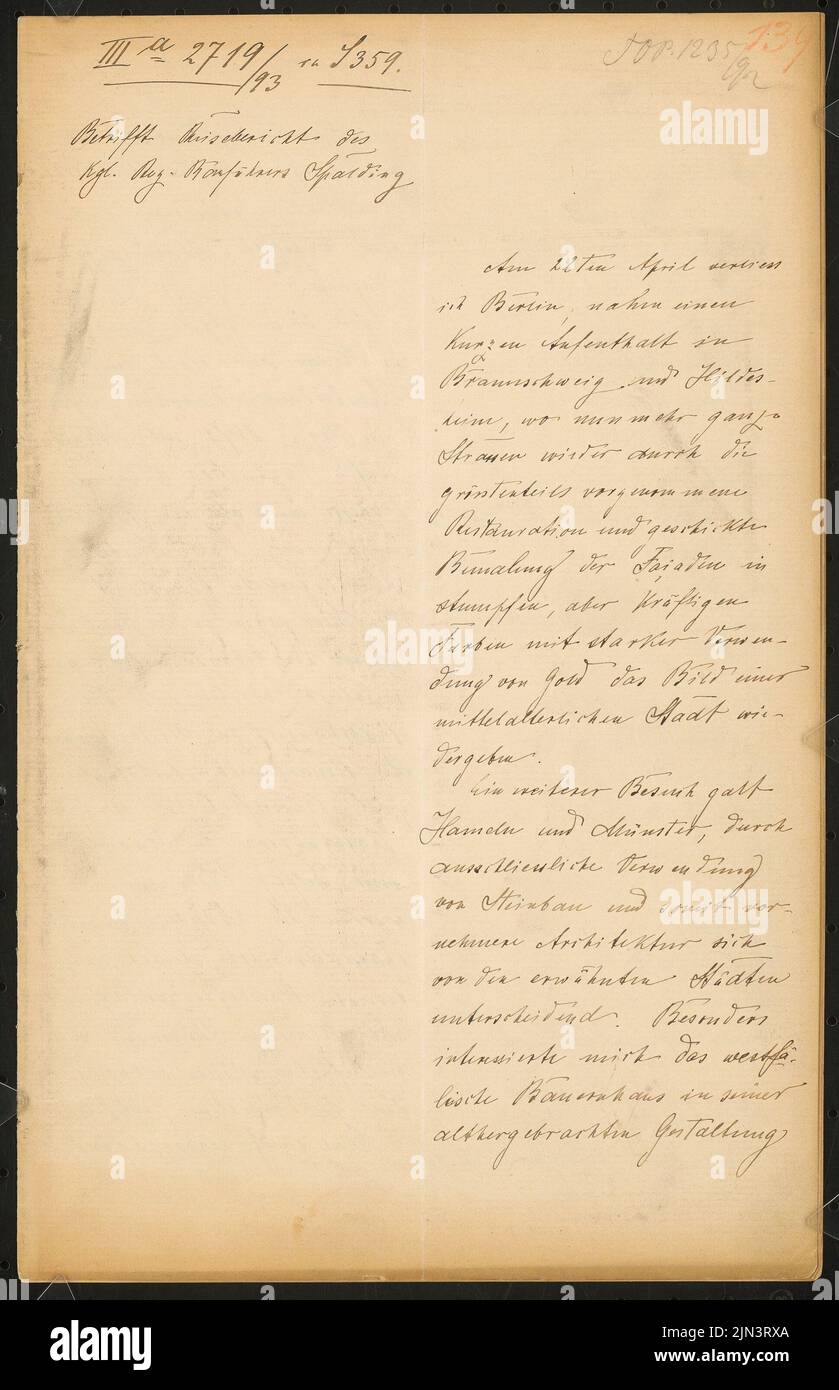 III a 2719/93 en S359.
TOP. 1235/92
139
Betrifft Reisebericht des
Kgl. Reg. Bauführers Spalding
Am 22ten April verliess
ich Berlin, nahm einen
kurzen Aufenthalt in
Braunschweig und Hildes-
heim, wo nunmehr ganze
Strassen wieder durch die
grösstenteils vorgenommene
Restauration und geschickte
Bemalung der Façaden in
stumpfen, aber kräftigen
Farben mit starker Verwen-
dung von Gold das Bild einer
mittelalterlichen Stadt wie-
dergeben.
Ein weiterer Besuch galt
Hameln und Münster, durch
ausschliessliche Verwendung
von Steinbau und somit vor-
nehmere Architektur sich
von den erwähnten Städten
unterscheidend. Besonders
interessierte mich das westfä-
lische Bauernhaus in seiner
althergebrachten Gestaltung
alamy
Image ID: 2JN3RXA
www.alamy.com